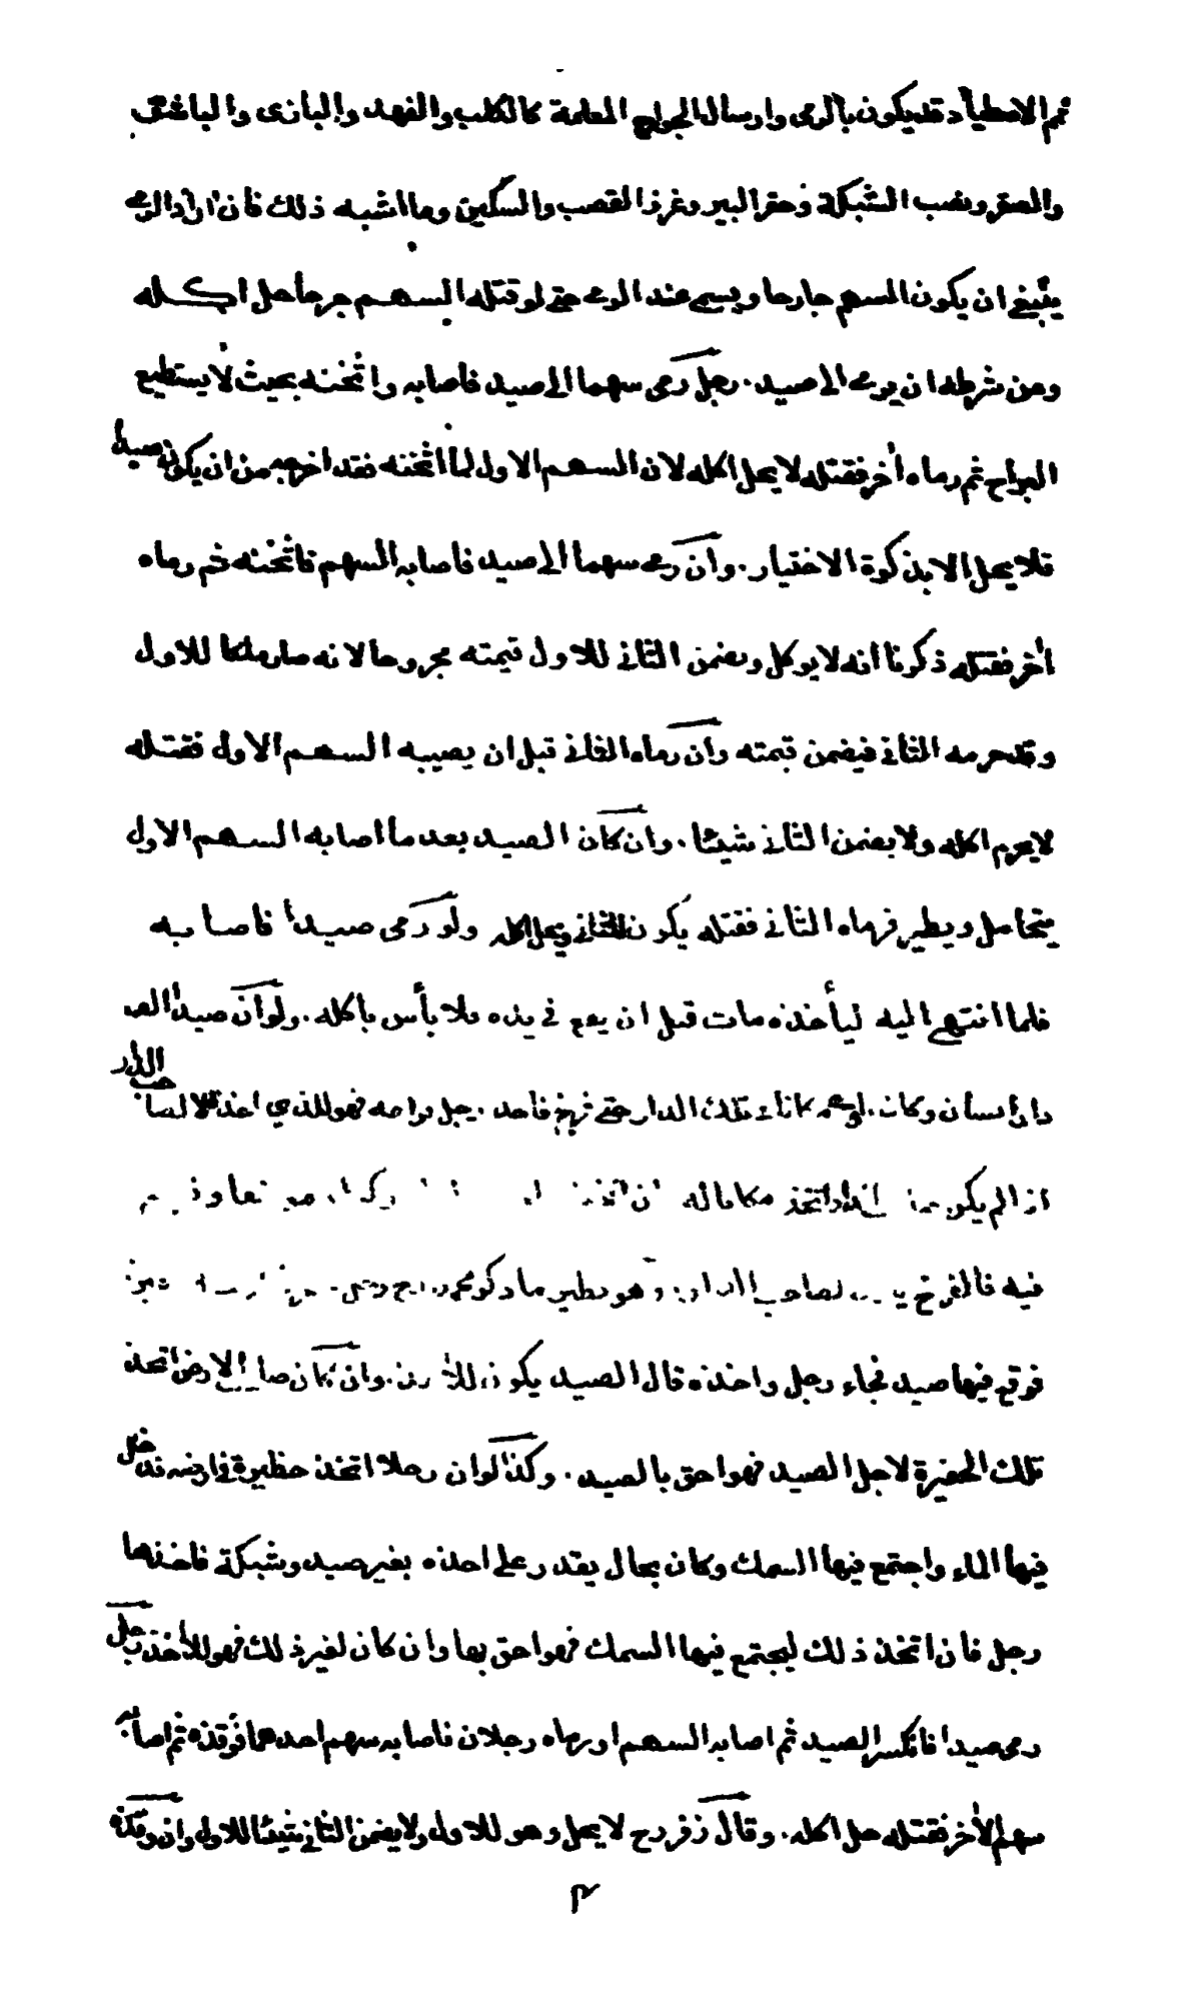 ثم الاصطياد قد يكون بالرمى وارسال الجوارح المعلمة كالكلب والفهد والبازى والباشق
والصقر ونصب الشبكة وحفر البير وغرز القصب والسكين وما اشبه ذلك فان اراد الرمى
ينبغى ان يكون السهم جارحا ويسمى عند الرمى حتى لو قتله السهم جرحا حل اكله
ومن شرطه ان يرمى الى صيد. رجل رمى سهما الى صيد فاصابه واثخنه بحيث لا يستطيع
البراح ثم رماه أخر فقتله لا يحل اكله لان السهم الاول لما اثخنه فقد اخرجه من ان يكون صيدا
فلا يحل الا بذكوة الاختيار. وان رمى سهما الى صيد فاصابه السهم فاثخنه ثم رماه
أخر فقتله ذكرنا انه لا يوكل ويضمن الثانى للاول قيمته مجروحا لانه صار ملكا للاول
وقد حرمه الثانى فيضمن قيمته وان رماه الثانى قبل ان يصيبه السهم الاول فقتله
لا يحرم اكله ولا يضمن الثانى شيئا. وان كان الصيد بعد ما اصابه السهم الاول
يتحامل ويطير فرماه الثانى فقتله يكون للثانى ويحل اكله ولو رمى صيدا فاصابه
فلما انتهى اليه ليأخذه مات قبل ان يقع فى يده فلا بأس باكله. ولو ان صيدا
دار انسان وكان تلك الدار حتى فرخ فاحد رجل فراخه فهو للذي اخذ لا لصاحب الدار
اذا لم يكن اتخذ مكانا له
فيه فالفرخ لصاحب الدار وهو نظير ما ذكر محمد رح
فوقع فيها صيد فجاء رجل واخذه قال الصيد يكون للأخذ. وان كان صاحب الارض اتخذ
تلك الحفيرة لاجل الصيد فهو احق بالصيد. وكذا لو ان رجلا اتخذ حظيرة فى ارضه فدخل
فيها الماء واجتمع فيها السمك وكان بحال يقدر على اخذه بغير صيد وشبكة فاخذها
رجل فان اتخذ ذلك ليجتمع فيها السمك فهو احق بها وان كان لغير ذلك فهو للأخذ رجل
رمى صيدا فانكسر الصيد ثم اصابه السهم او رماه رجلان فاصابه سهم احدهما فوقذه ثم اصابه
سهم الأخر فقتله حل اكله. وقال زفر رح لا يحل وهو للاول ولا يضمن الثانى شيئا للاول وان وقذه